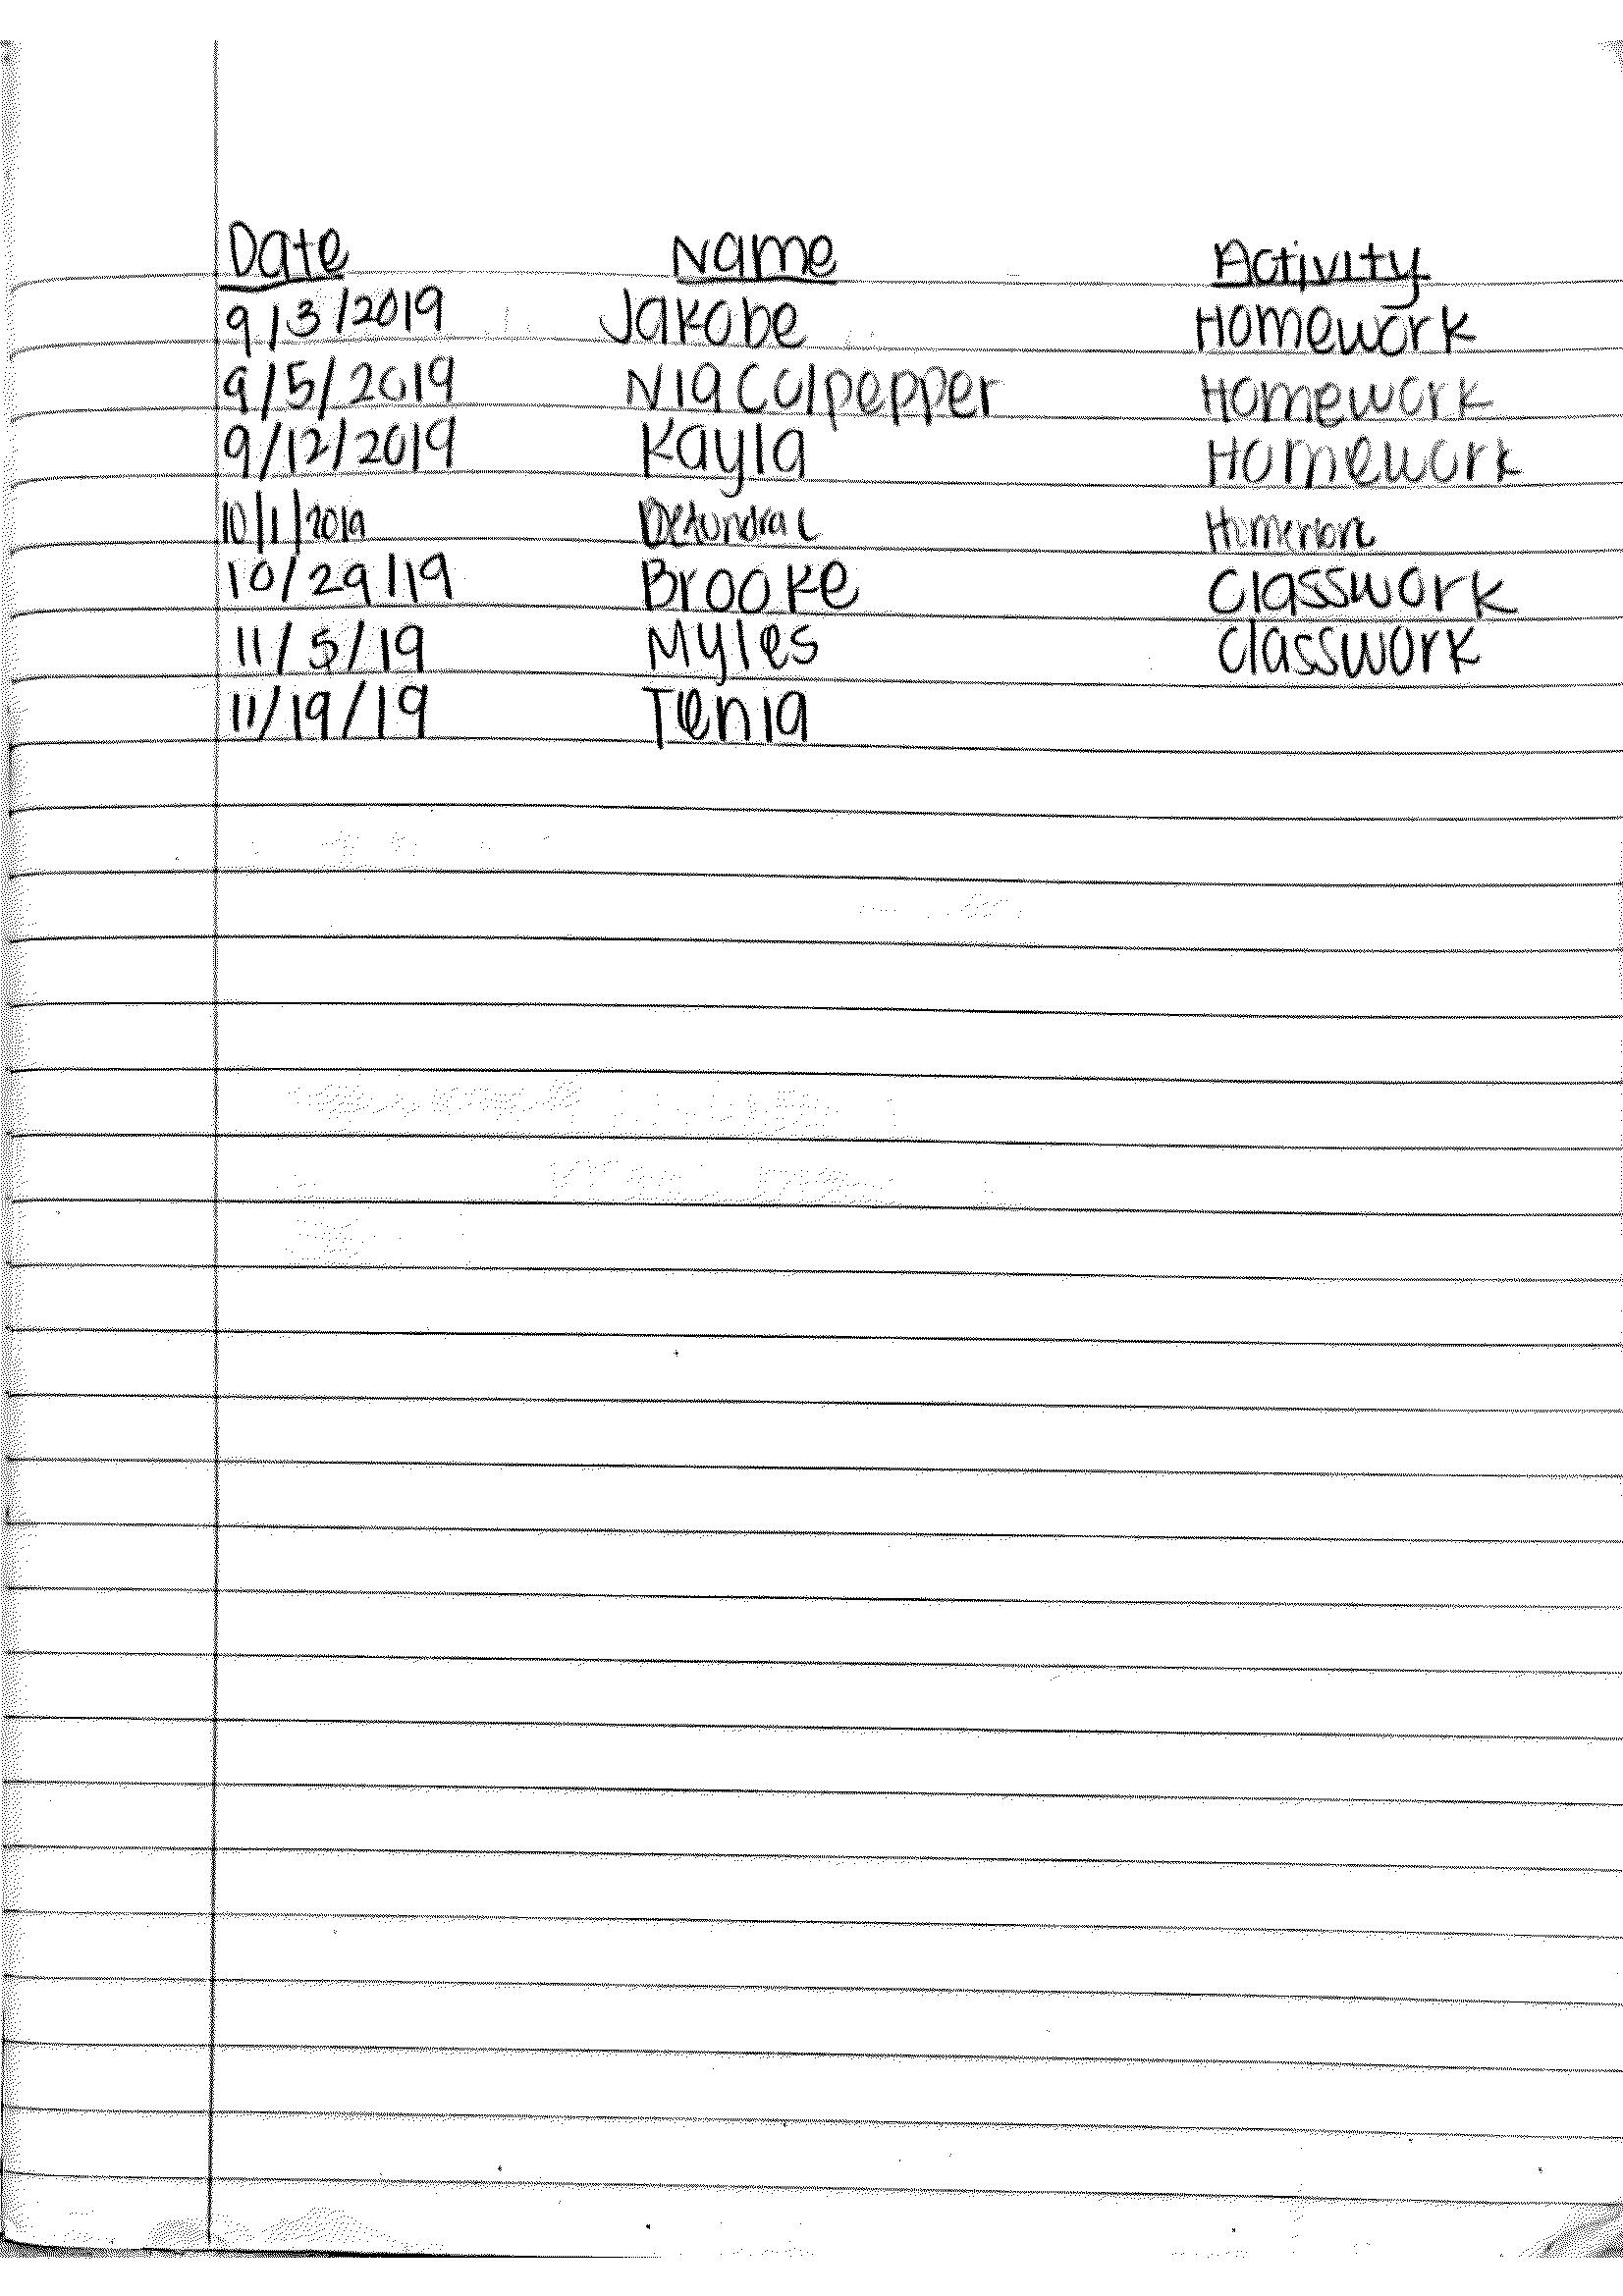 Date Name Activity
9/3/2019 Jakobe Homework
9/5/2019 Nia Culpepper Homework
9/12/2019 Kayla Homework
10/1/2019
10/29/19 Brooke Classwork
11/5/19 Myles Classwork
11/19/19 Tenia